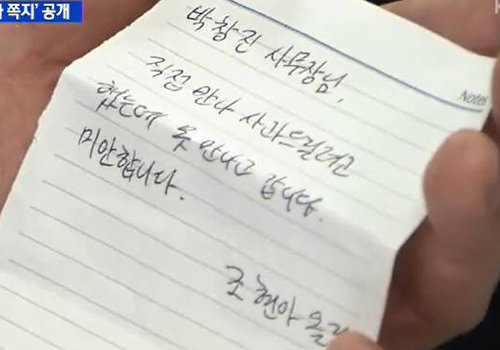 쪽지' 공개
Notes
박창진 사무장님,
직접 만나 사과드릴려고
했는데 못 만나고 갑니다.
미안합니다.
조현아 올림